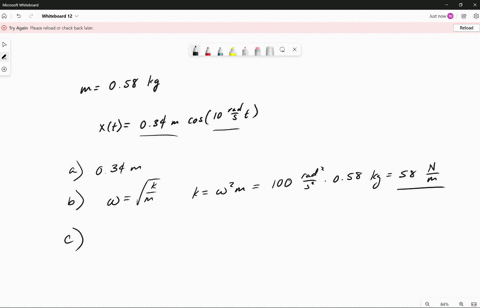 Microsoft Whiteboard
Whiteboard 12
Just now
Try Again Please reload or check back later.
Reload
m = 0.58 kg
x(t) = 0.34 m cos(10 rad/s t)
a) 0.34 m
b) ω = √(k/m) k = ω²m = 100 rad²/s² · 0.58 kg = 58 N/m
c)
64%